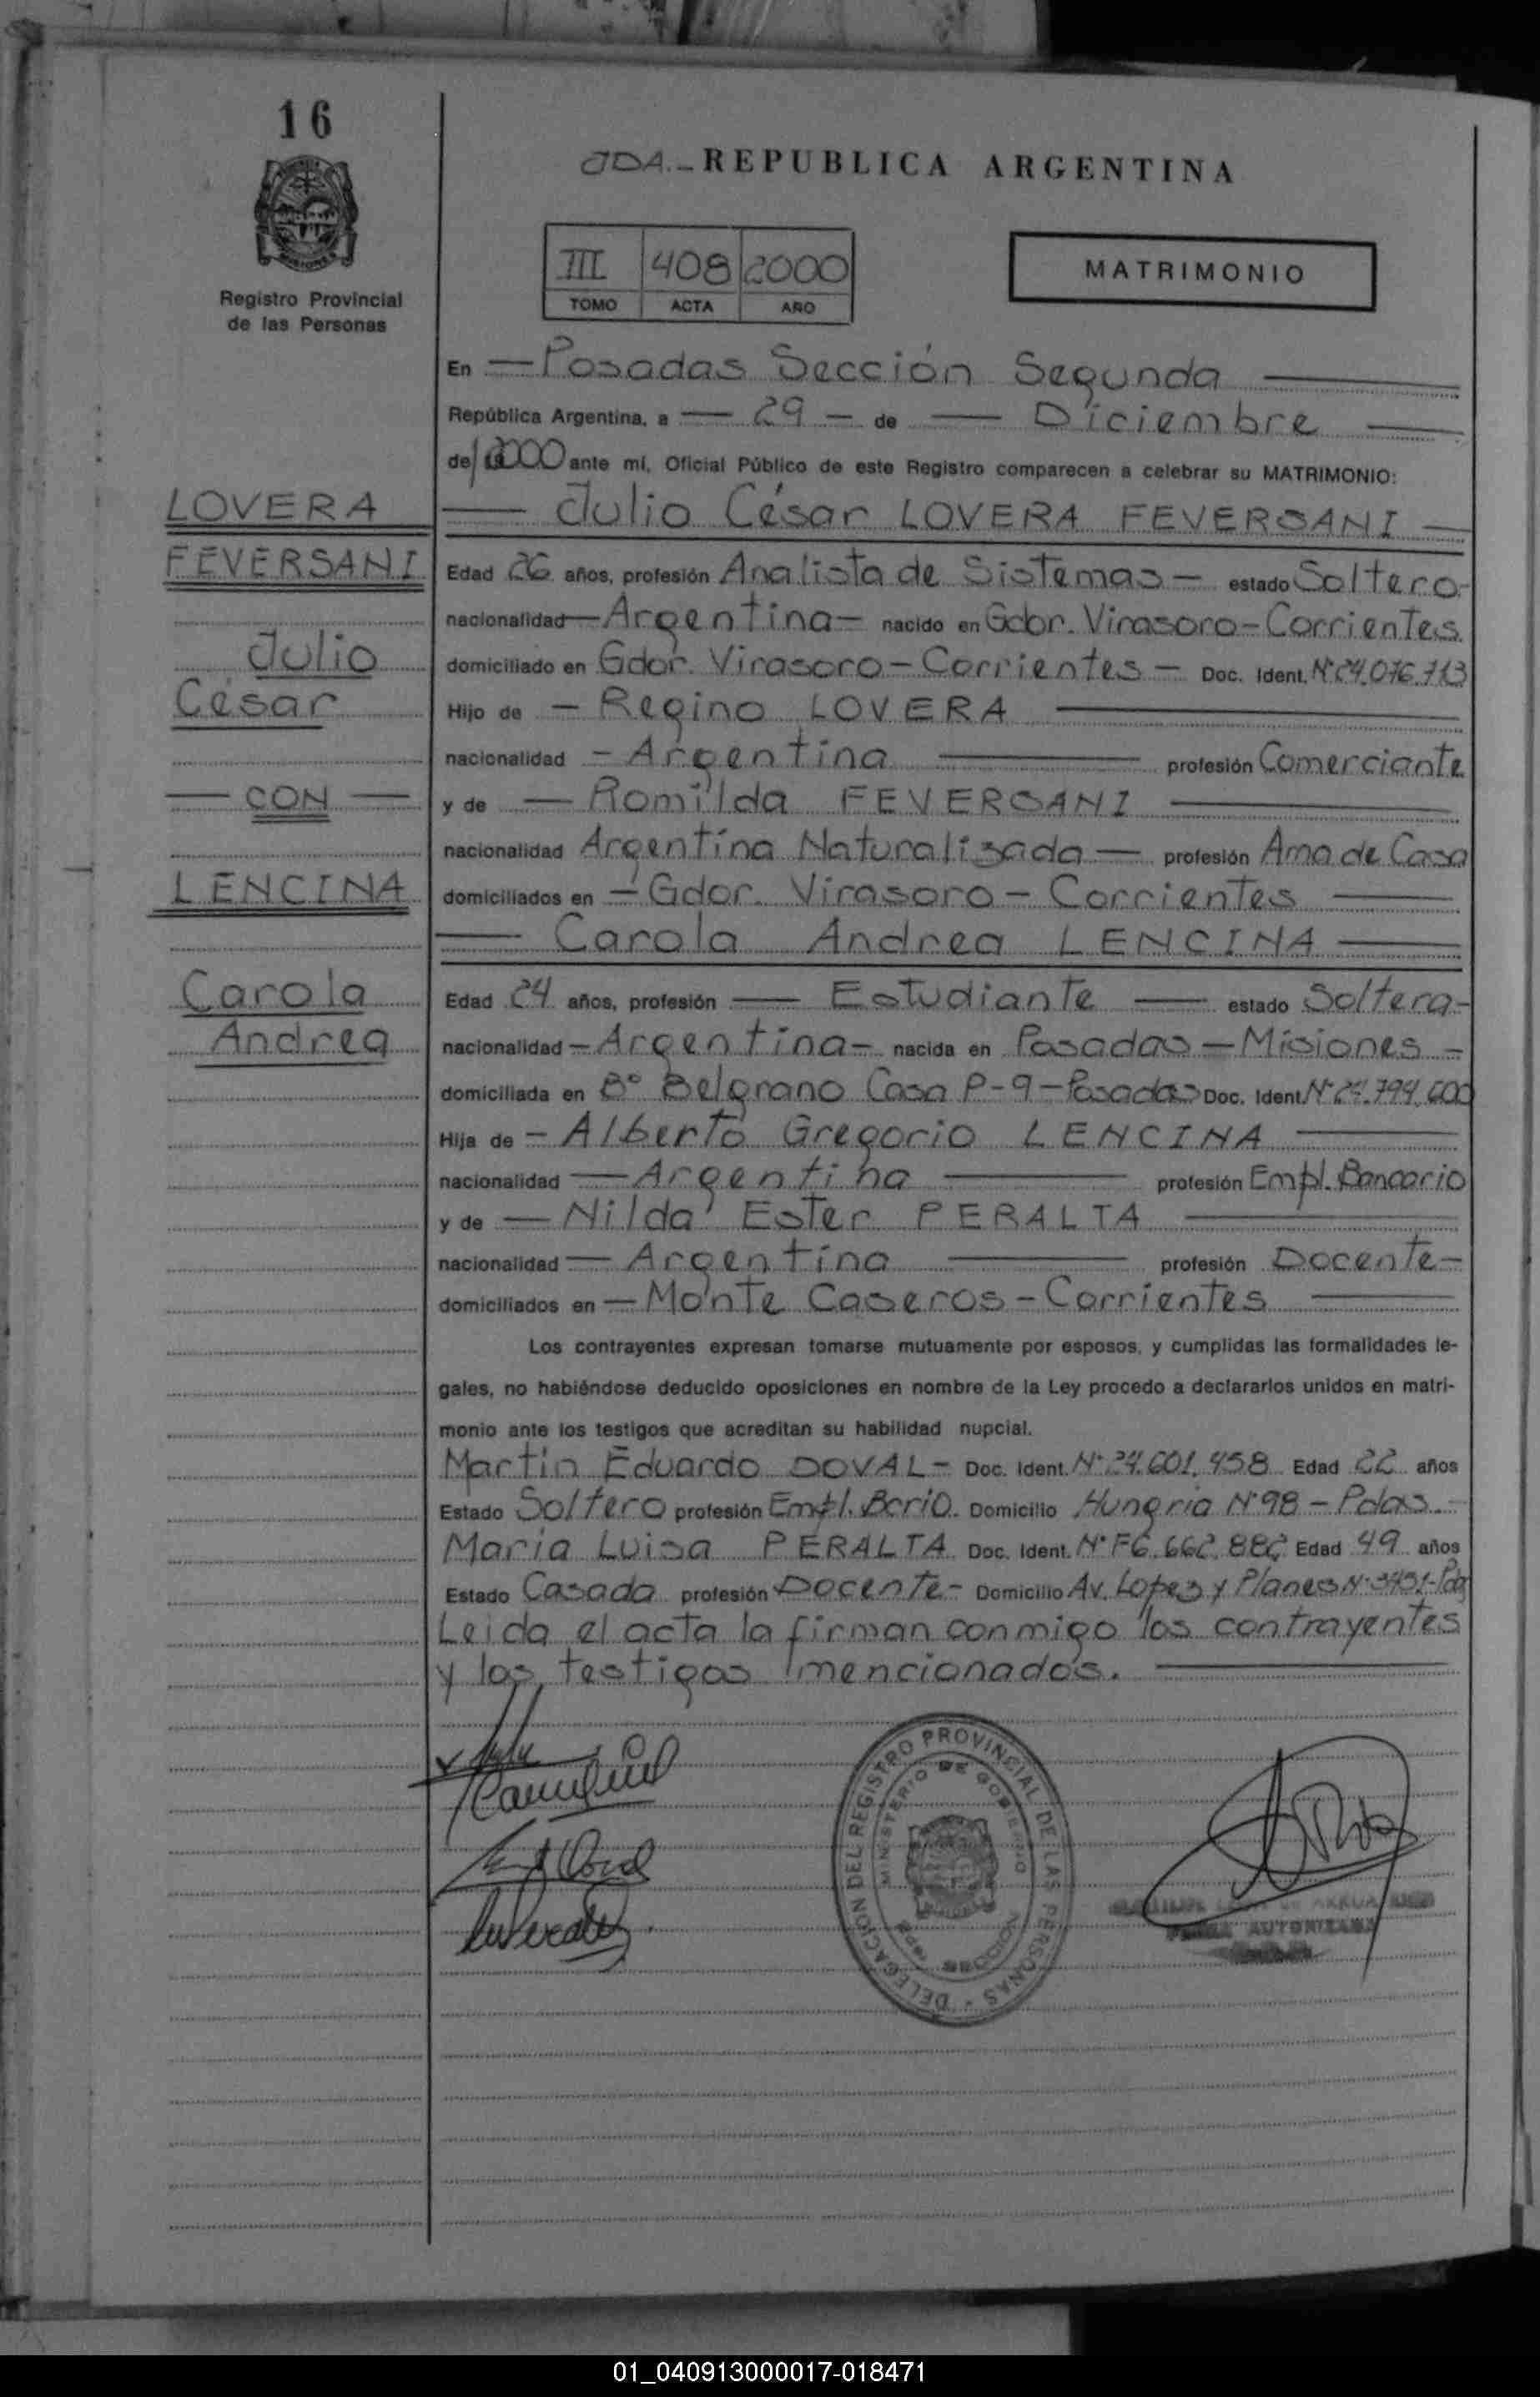 16
JDA.- REPUBLICA ARGENTINA
Registro Provincial
de las Personas
III 408 2000
TOMO ACTA AÑO
MATRIMONIO
En — Posadas Sección Segunda —
República Argentina, a — 29 — de — Diciembre —
de 2000 ante mí, Oficial Público de este Registro comparecen a celebrar su MATRIMONIO:
LOVERA
FEVERSANI
Julio
César
— CON —
LENCINA
Carola
Andrea
— Julio César LOVERA FEVERSANI —
Edad 26 años, profesión Analista de Sistemas — estado Soltero-
nacionalidad — Argentina — nacido en Gdor. Virasoro - Corrientes.
domiciliado en Gdor. Virasoro - Corrientes — Doc. Ident. Nº 24.076.713
Hijo de — Regino LOVERA —
nacionalidad — Argentina — profesión Comerciante
y de — Romilda FEVERSANI —
nacionalidad Argentina Naturalizada — profesión Ama de Casa
domiciliados en — Gdor. Virasoro - Corrientes —
— Carola Andrea LENCINA —
Edad 24 años, profesión — Estudiante — estado Soltera-
nacionalidad — Argentina — nacida en Posadas — Misiones —
domiciliada en Bº Belgrano Casa P-9 - Posadas Doc. Ident. Nº 24.794.600
Hija de — Alberto Gregorio LENCINA —
nacionalidad — Argentina — profesión Empl. Bancario
y de — Nilda Ester PERALTA —
nacionalidad — Argentina — profesión Docente —
domiciliados en — Monte Caseros - Corrientes —
Los contrayentes expresan tomarse mutuamente por esposos, y cumplidas las formalidades le-
gales, no habiéndose deducido oposiciones en nombre de la Ley procedo a declararlos unidos en matri-
monio ante los testigos que acreditan su habilidad nupcial.
Martín Eduardo DOVAL - Doc. Ident. Nº 24.601.458 Edad 22 años
Estado Soltero profesión Empl. Bcrio. Domicilio Hungria Nº 98 - Pdas. -
María Luisa PERALTA Doc. Ident. Nº F6.662.882 Edad 49 años
Estado Casada profesión Docente - Domicilio Av. Lopez y Planes Nº 3431-Pdas
Leida el acta la firman conmigo los contrayentes
y los testigos mencionados. —
DELEGACION DEL REGISTRO PROVINCIAL DE LAS PERSONAS
MINISTERIO DE GOBIERNO
AUTORIZADA
01_040913000017-018471